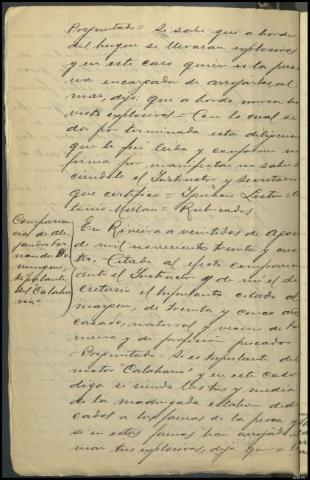 Preguntado = Si sabe que a bordo
del buque se llevaran explosivos
y en este caso quien es la perso
na encargada de arrojarlos al
mar, dijo; que a bordo, nunca ha
visto explosivos = Con lo cual se
da por terminada esta diligencia
que le fué leida y conforme no
firma por manifestar no saber
haciendolo el Instructor y Secretario
que certifico =
Milan = Rubricados.
Comparecen
cia de Ale
jandro Fer
nandez Do
minguez,
tripulante
del Cataba
ria
En Riveira a veintidos de Agosto
de mil novecientos treinta y cua
tro. Citado al efecto comparece
ante el Instructor y de mi el Se
cretario el tripulante citado al
margen, de treinta y cinco años
casado, natural y vecino de
y de profesión pescador
= Preguntado = Si es tripulante del
motor y en este caso
diga si siendo las tres y media
de la madrugada estaban dedi
cados a las faenas de la pesca y
si en estas faenas han arrojado al
mar tres explosivos, dijo que a l